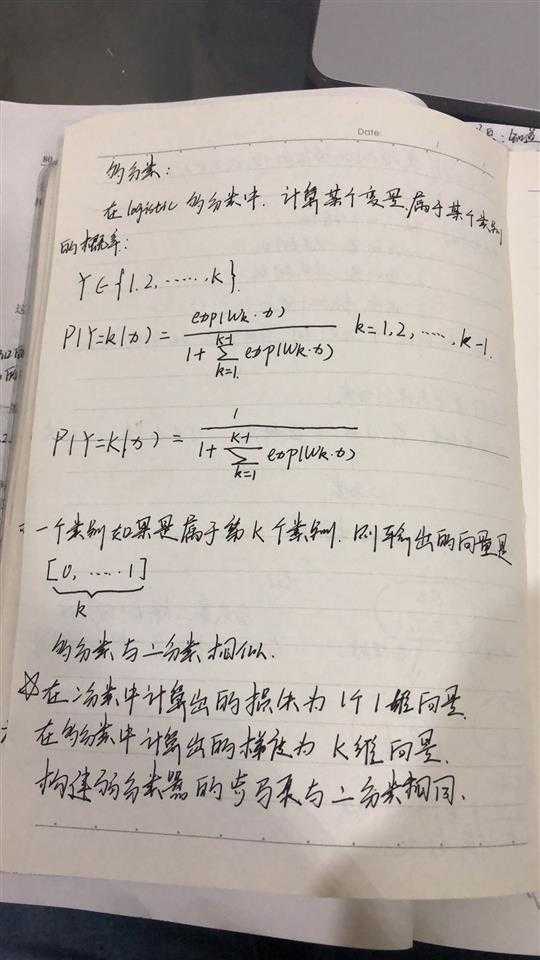 Date:
多分类:
在logistic 多分类中. 计算某个变量属于某个类别
的概率:
Y∈{1.2, ……, k}.
P(Y=k|x) = exp(Wk·x) / 1+∑_{k=1}^{k-1} exp(Wk·x) k=1,2, …, k-1.
P(Y=K|x) = 1 / 1+∑_{k=1}^{K-1} exp(Wk·x)
一个类别如果是属于第K个类别. 则输出的向量是
[0, ……1]
k
多分类与二分类相似.
☆在二分类中计算出的损失为1个1维向量.
在多分类中计算出的梯度为 K维向量.
构建弱分类器的步骤与二分类相同.